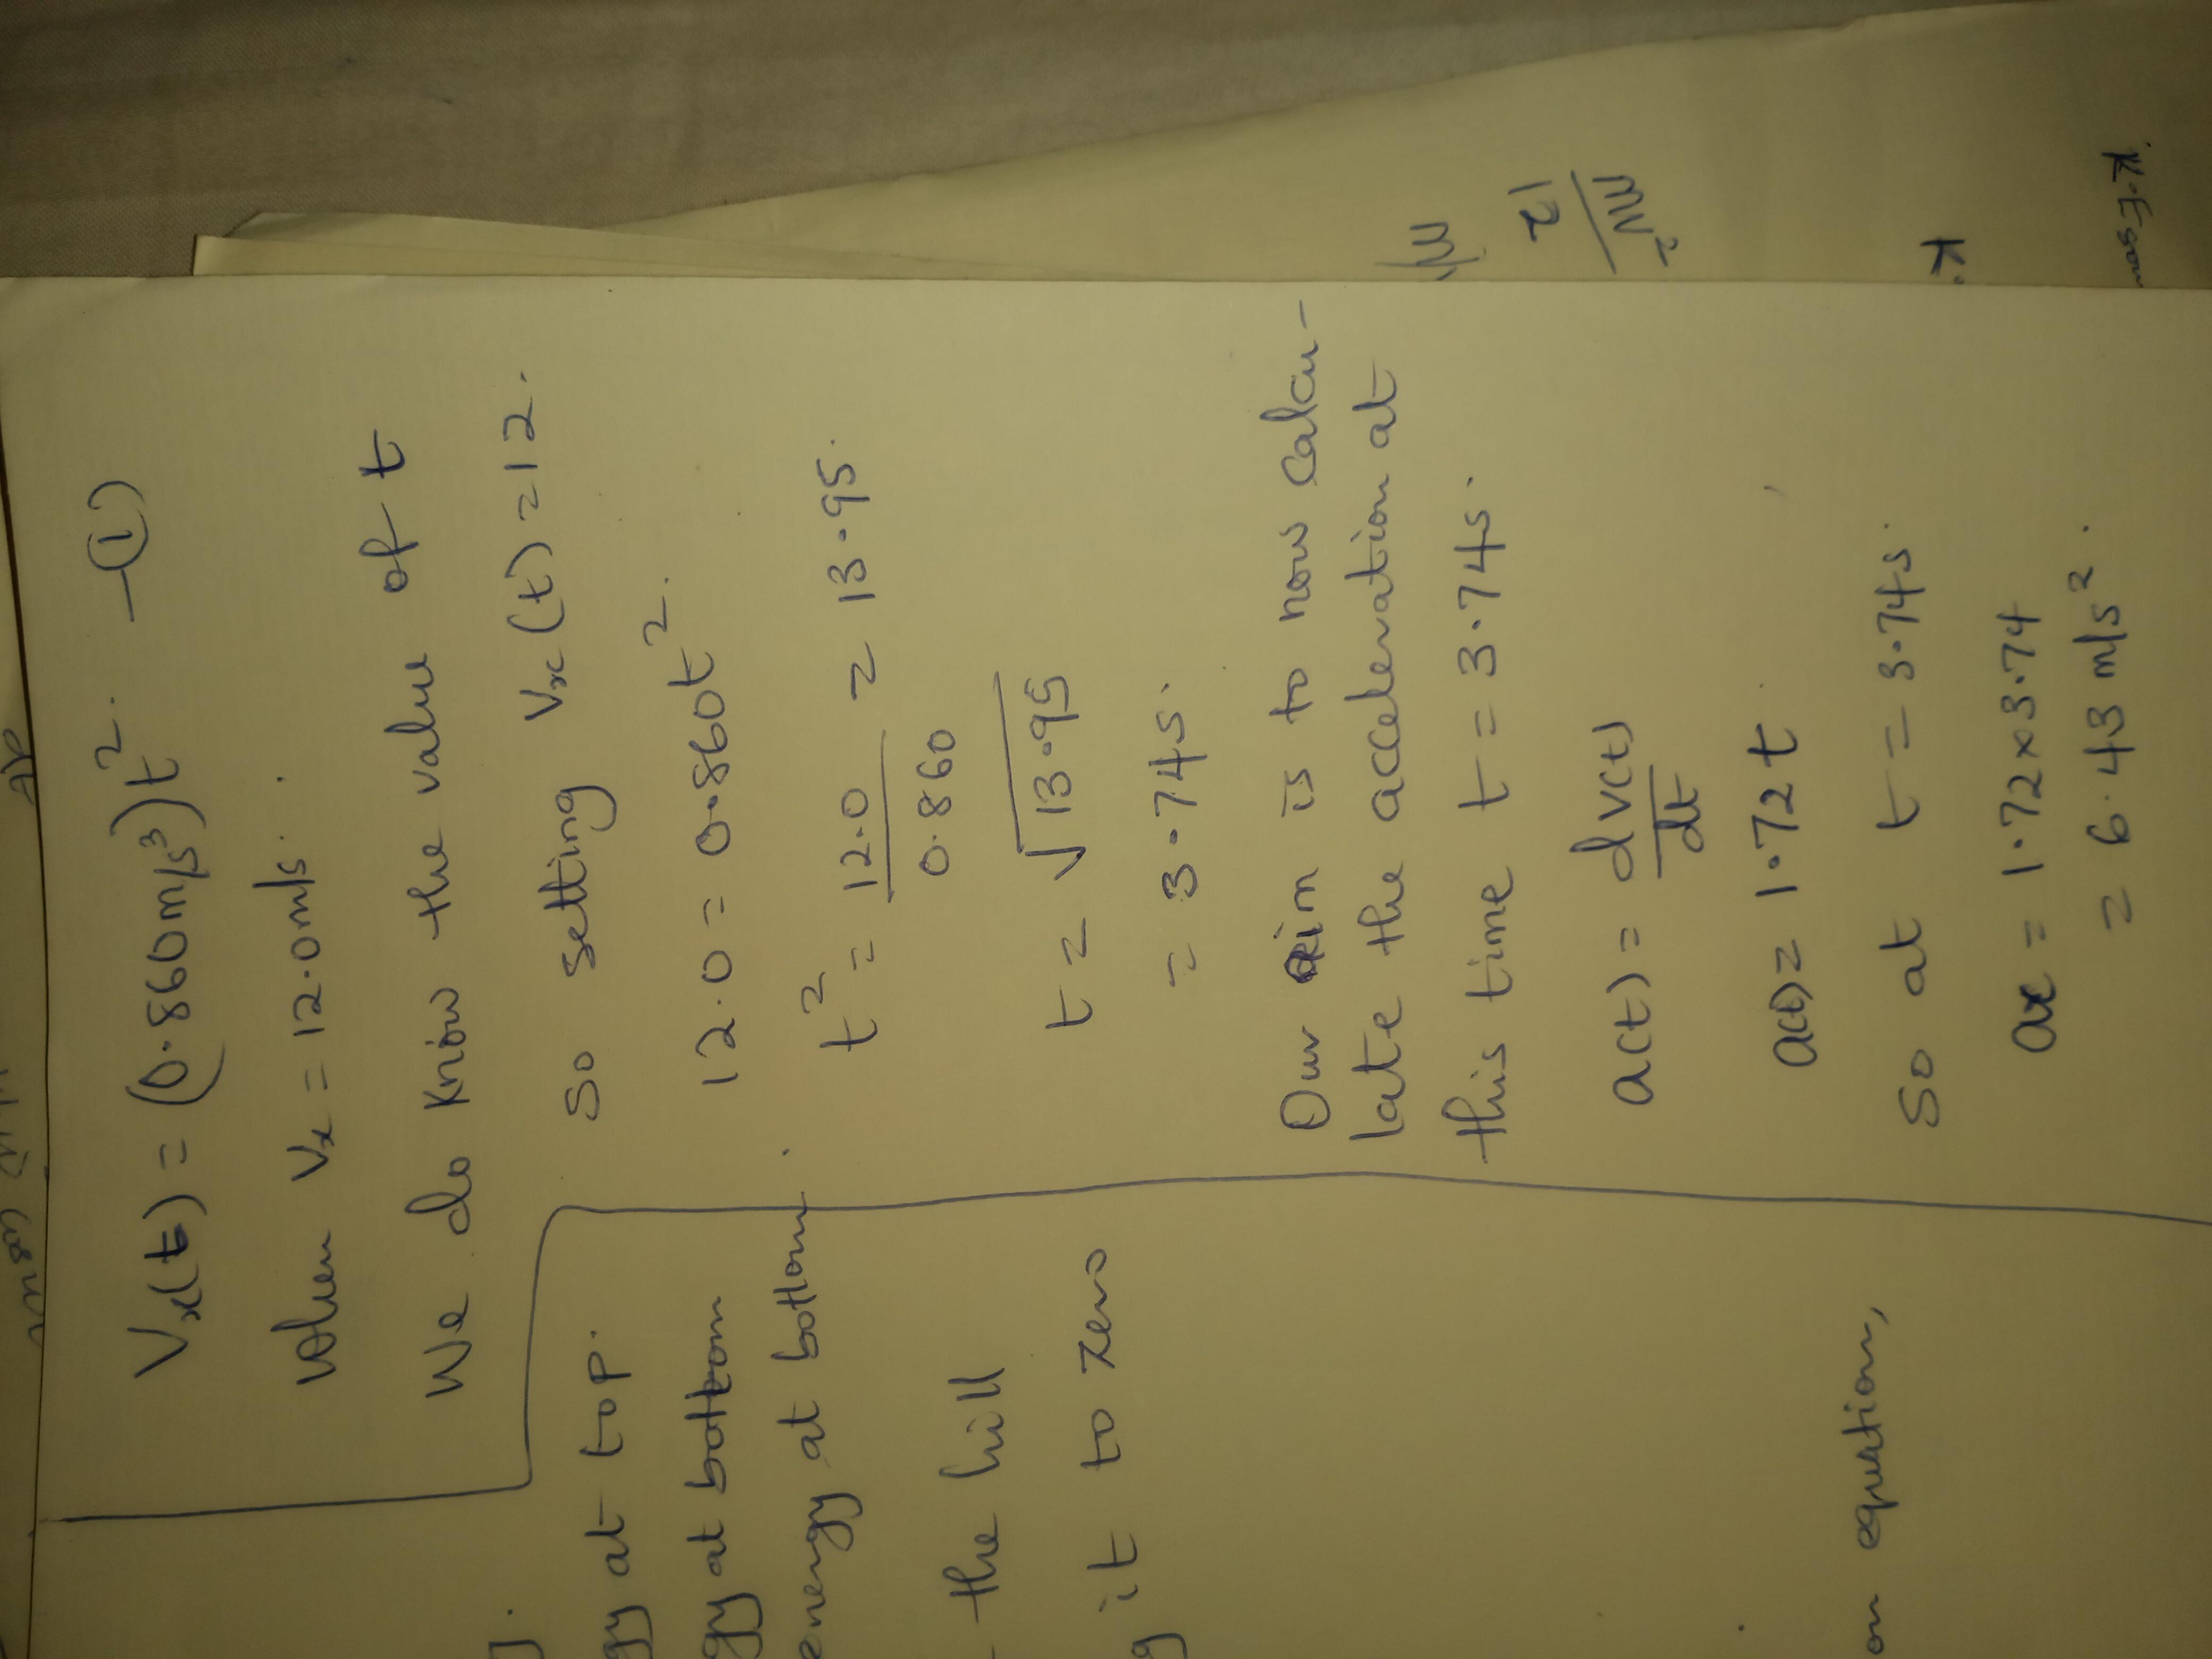 Vx(t) = (0.860m/s³)t². —(1)
When Vx = 12.0m/s.
We do know the value of t
So setting Vx(t)=12.
12.0 = 0.860t².
t² = 12.0/0.860 = 13.95.
t = √13.95
= 3.74s.
Our aim is to now Calcu-
late the acceleration at
this time t = 3.74s.
a(t) = dv(t)/dt
a(t) = 1.72t
So at t = 3.74s.
ax = 1.72x3.74
= 6.43 m/s².
J.
gy at top.
gy at bottom
energy at bottom.
the hill
g it to zero
on equation,